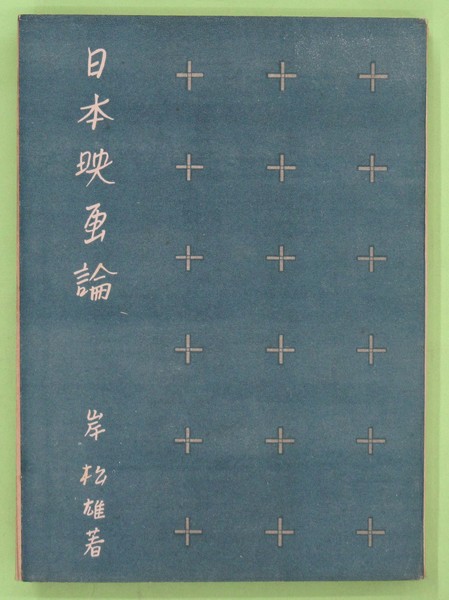 日本映画論
岸松雄著